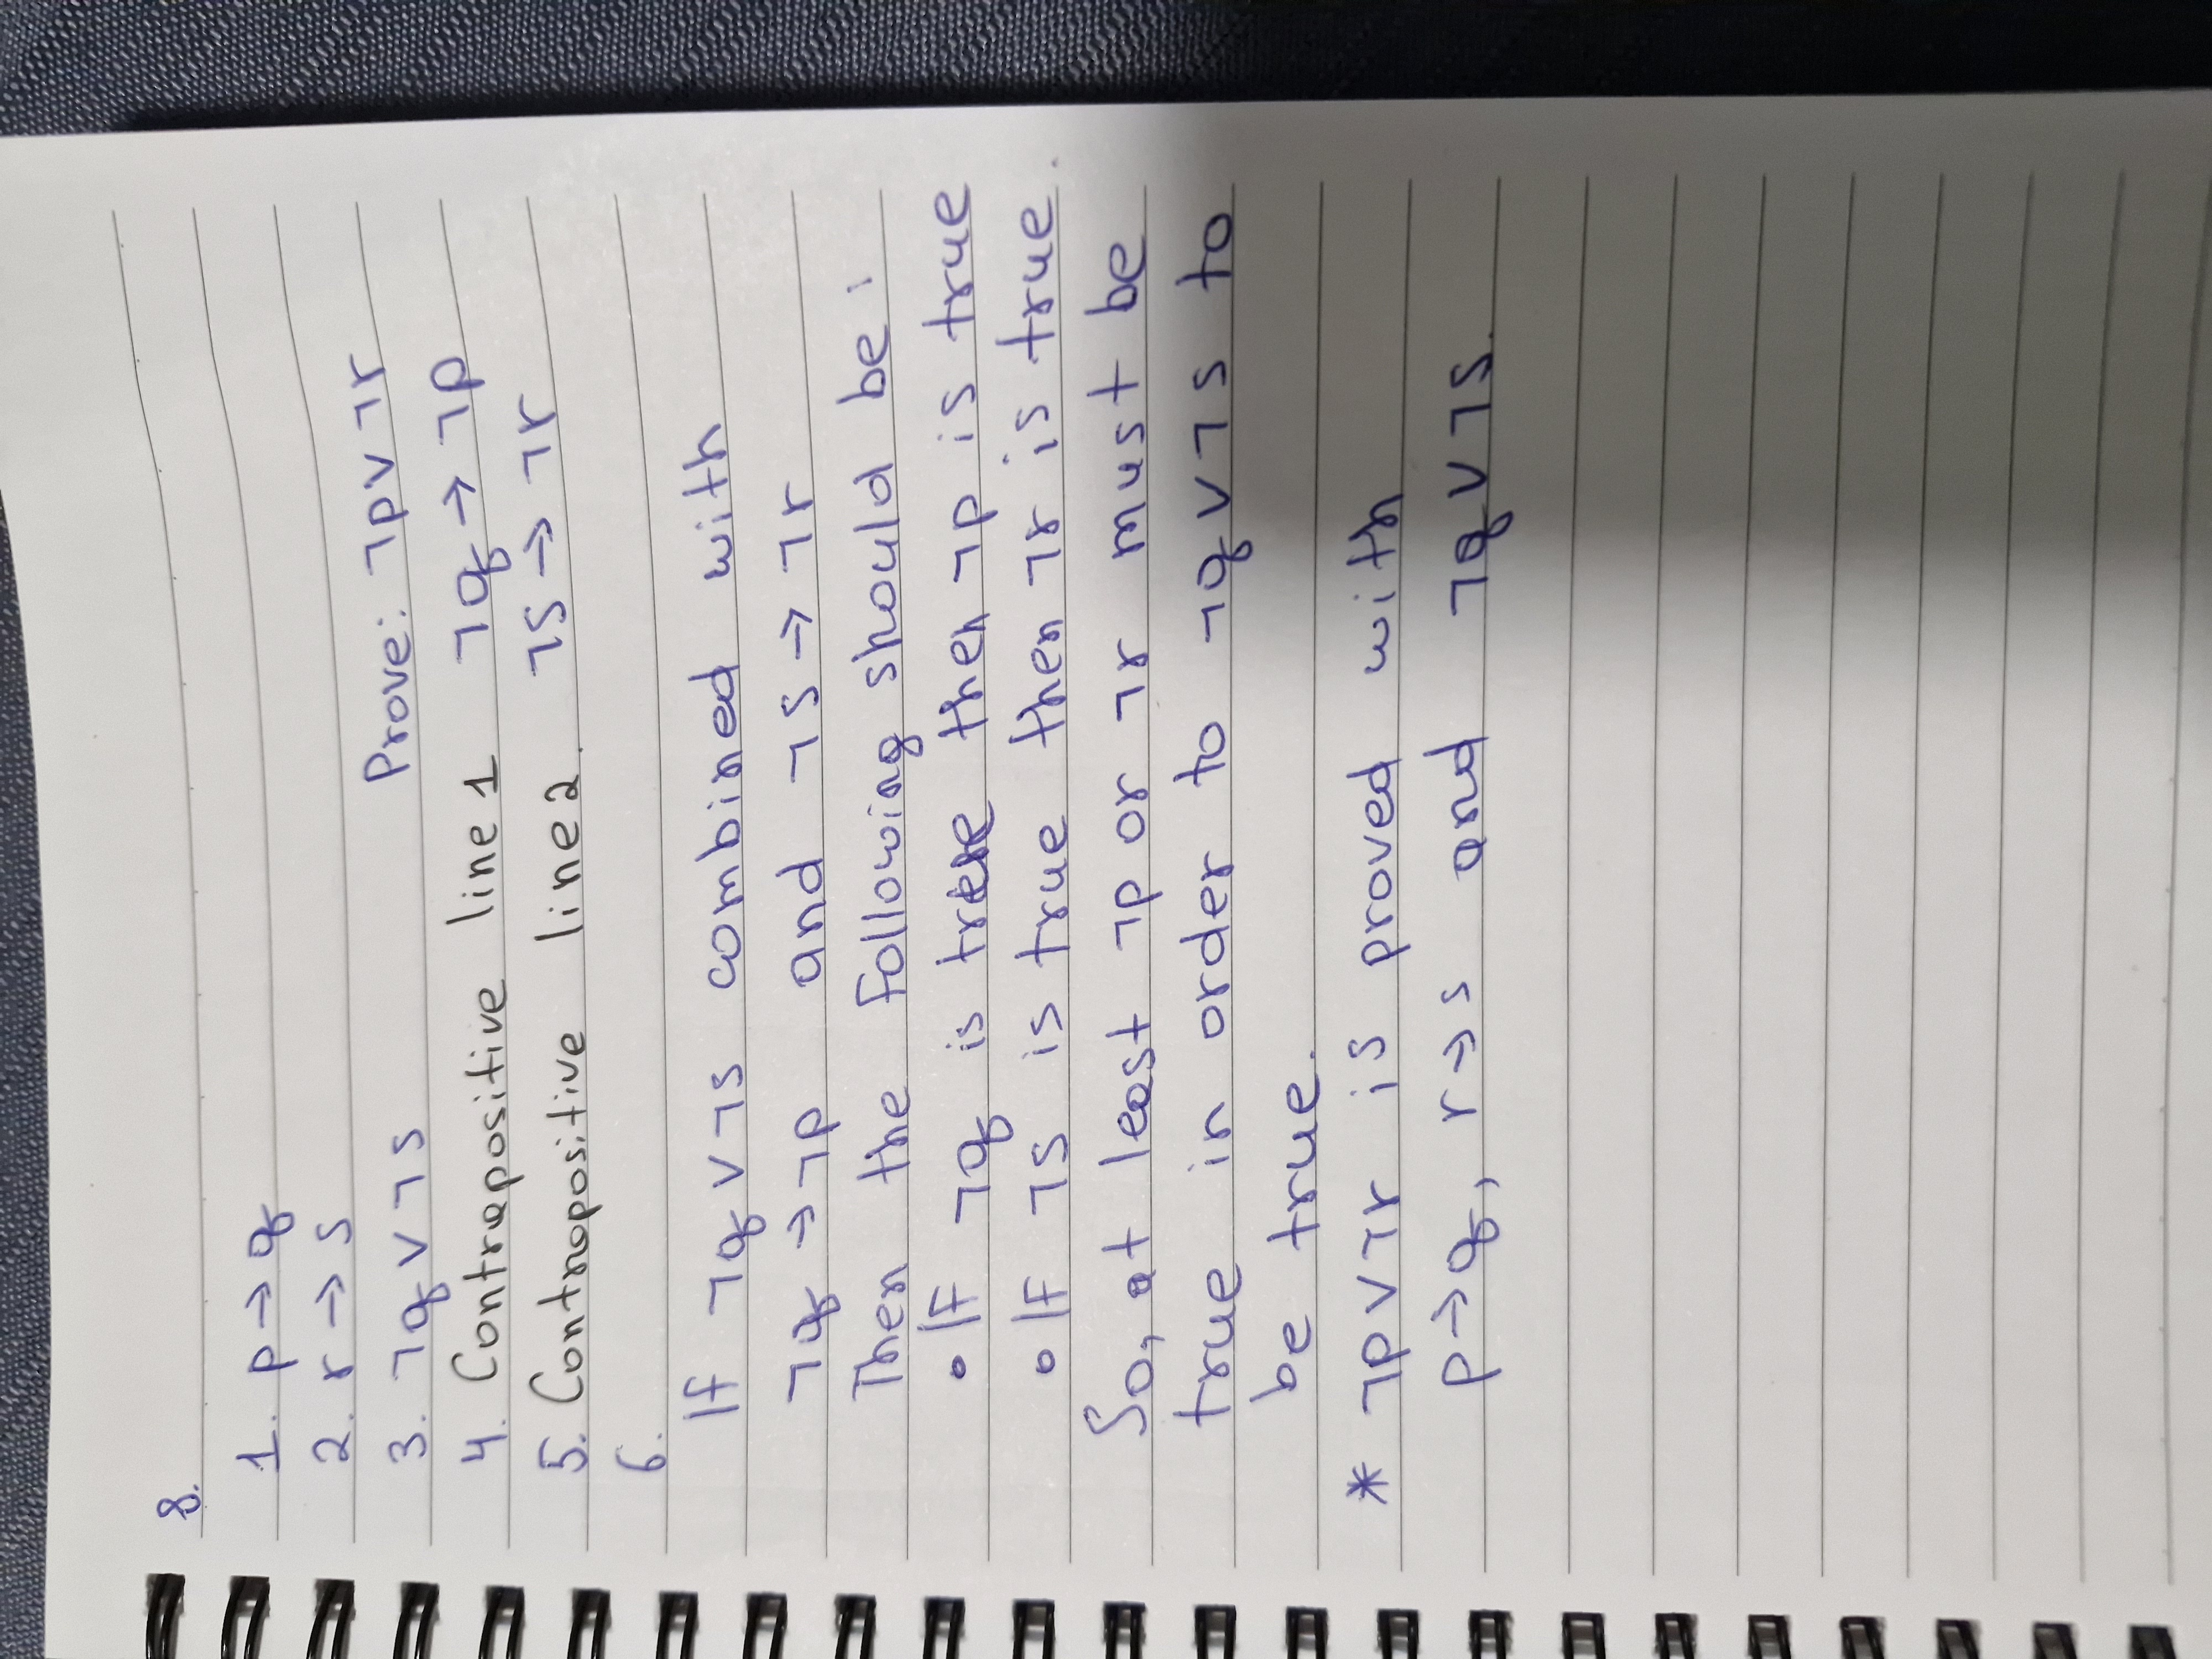 8.
1. p → q
2. r → s
3. ¬q ∨ ¬s Prove: ¬p ∨ ¬r
4. Contrapositive line 1 ¬q → ¬p
5. Contrapositive line 2. ¬s → ¬r
6.
If ¬q ∨ ¬s combined with
¬q → ¬p and ¬s → ¬r
Then the following should be:
• If ¬q is true then ¬p is true
• If ¬s is true then ¬r is true.
So, at least ¬p or ¬r must be
true in order to ¬q ∨ ¬s to
be true.
* ¬p ∨ ¬r is proved with
p → q, r → s and ¬q ∨ ¬s.